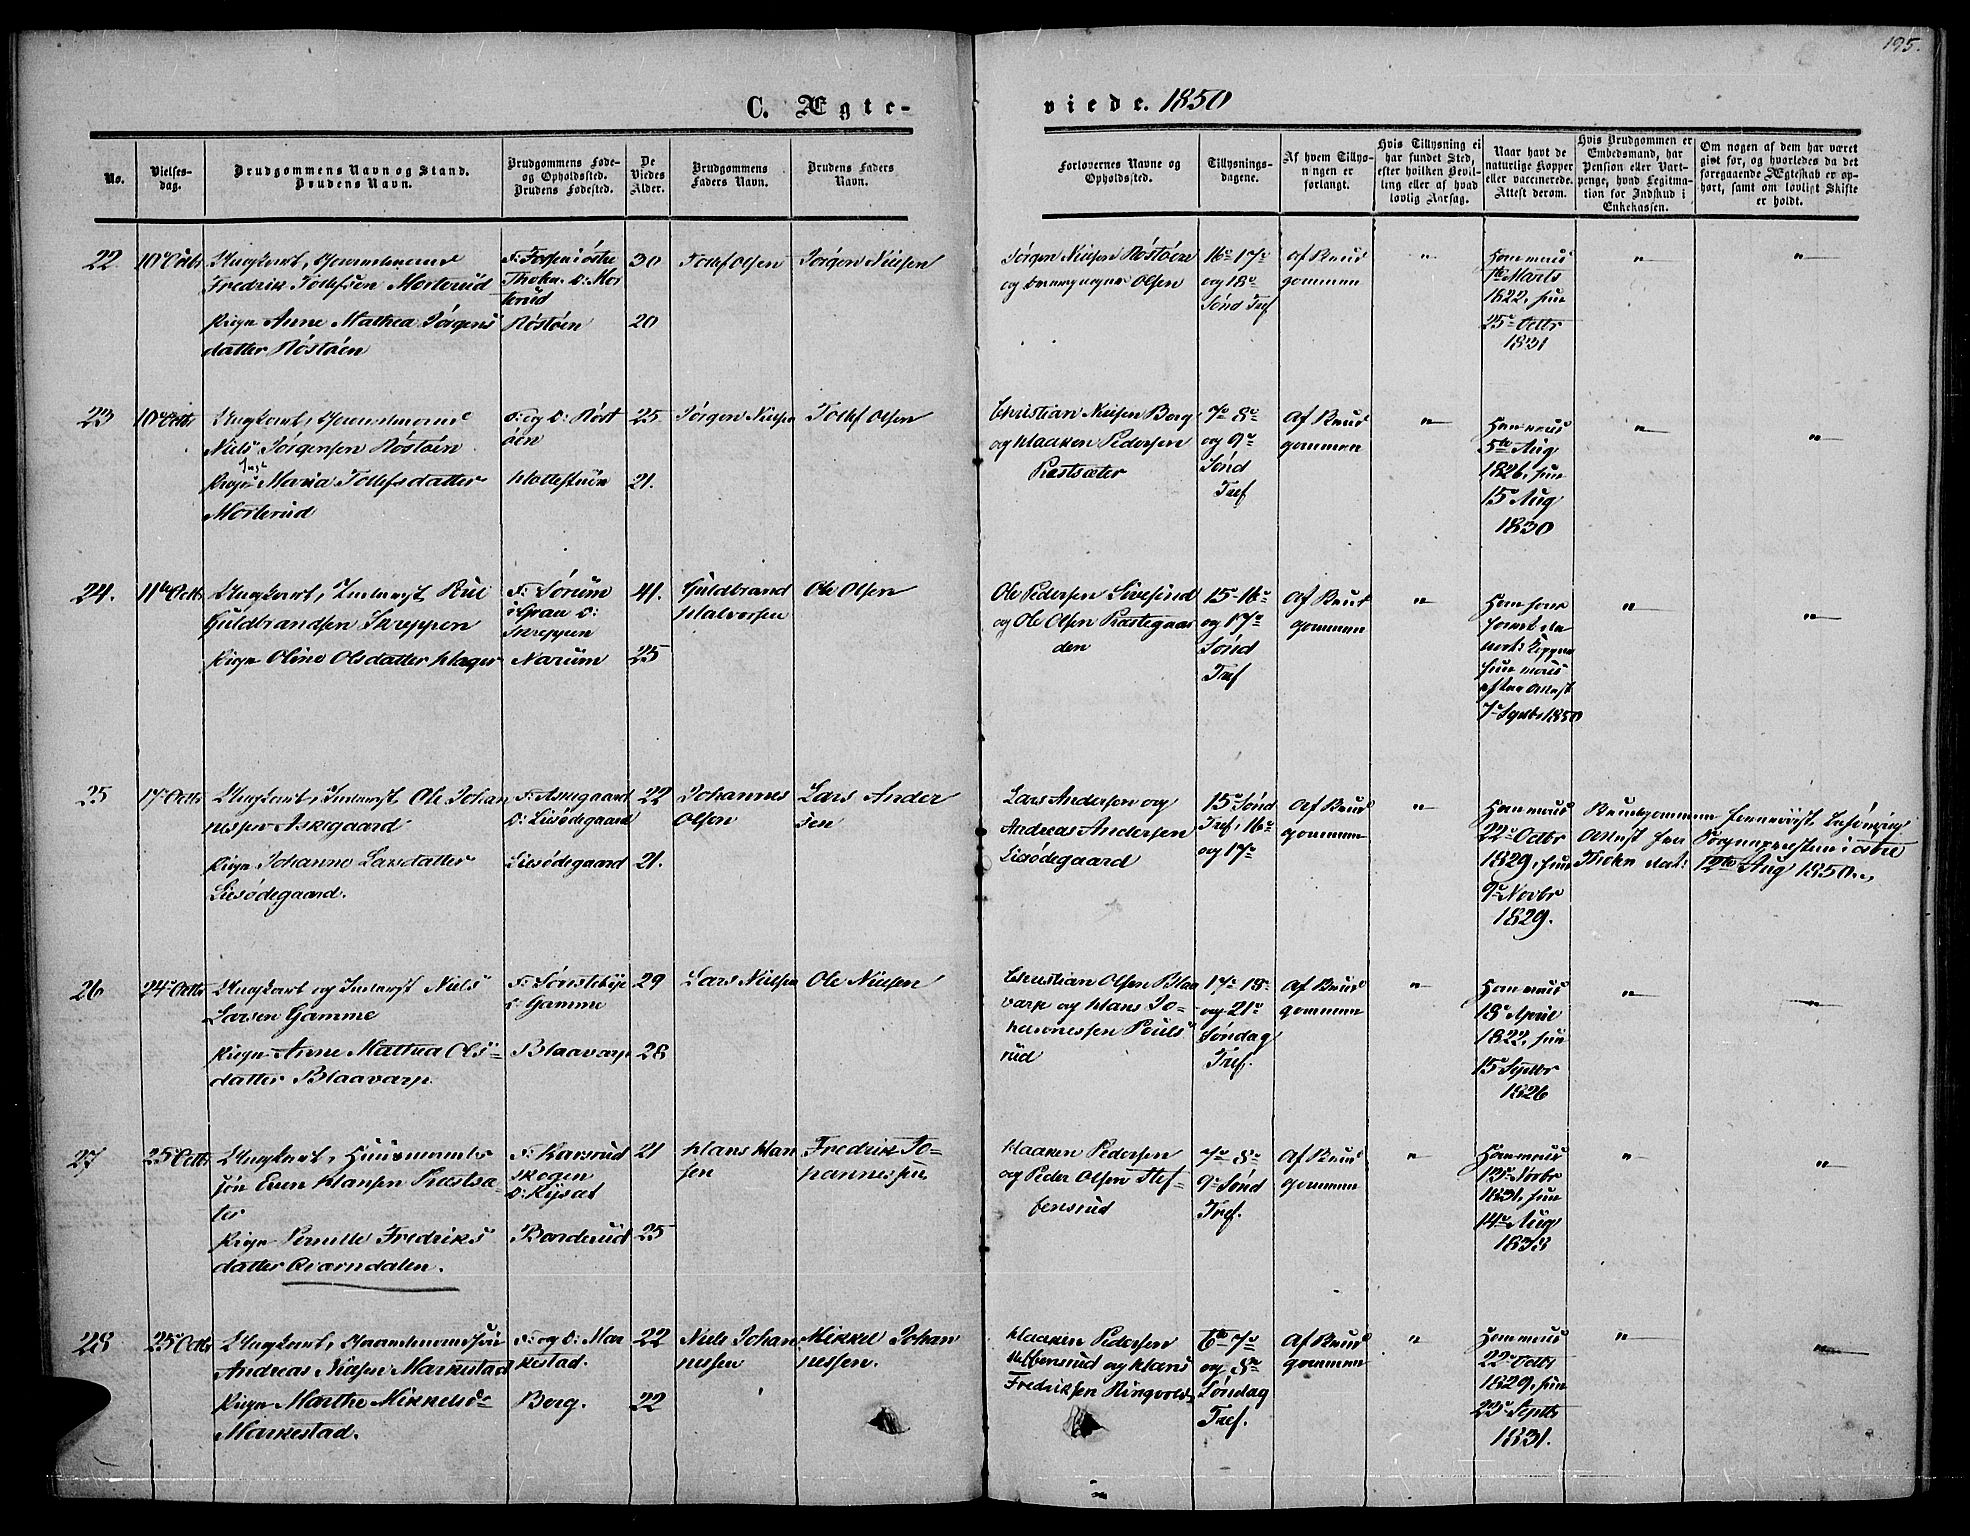 195.
C. Ægte-
viede. 1850
No.
Vielses-
dag.
Brudgommens Navn og Stand.
Brudens Navn.
Brudgommens Føde-
og Opholdssted.
Brudens Fødested.
De
Viedes
Alder.
Brudgommens
Faders Navn.
Brudens Faders
Navn.
Forlovernes Navne og
Opholdssted.
Tillysnings-
dagene.
Af hvem Tillys-
ningen er
forlangt.
Hvis Tillysning ei
har fundet Sted,
efter hvilken Bevil-
ling eller af hvad
lovlig Aarsag.
Naar havt de
naturlige Kopper
eller vaccinerede.
Attest derom.
Hvis Brudgommen er
Embedsmand, har
Pension eller Vart-
penge, hvad Legitma-
tion for Indskud i
Enkekassen.
Om nogen af dem har været
gift før, og hvorledes da det
foregaaende Ægteskab er op-
hørt, samt om lovligt Skifte
er holdt.
22 10 Octbr Ungkarl, Gaardmand
Fredrik Tollefsen Morterud
Pige Anne Mathea Jørgens
datter Røstøen
F: i østre
Thoten O: Mor
terud
Røstøen
30
20
Tollef Olsen
Jørgen Nielsen
Jørgen Nielsen Røstøen
og Olsen
16 17
og 18
Sønd Tref
af Brud
gommen
"
Han
Marts
1822, hun
25 Octbr
1831
"
"
23 10 Octbr Ungkarl, Gaardmand
Niels Jørgensen Røstøen
Pige Maria Tollefsdatter
Morterud
F: og O: Røst
øen
25
21.
Jørgen Nielsen
Tollef Olsen
Christian Nielsen Berg
og Haaken Pedersen
Rastsæter
7 8
og 9
Sønd
Tref
Af Brud
gommen
"
Han
5te Aug
1826, hun
15 Aug
1830
"
"
24. 11te Octbr Ungkarl, Inderst Poul
Guldbrandsen Skreppen
Pige Oline Olsdatter Hager
F: Sørum
i Gran O:
Skreppen
Narum
41.
25
Guldbrand
Halvorsen
Ole Olsen
Ole Pedersen Sivesind
og Ole Olsen Rastegaar
den
15 16
og 17
Sønd
Tref
Af Brud
gommen
"
Attest
7 Septbr 1850
"
"
25 17 Octbr Ungkarl, Inderst Ole Johan
nessen Askegaard
Pige Johanne Larsdatter
Liesødegaard.
F: Askegaard
O: Liesødegaard
Liesødegaard
22
21.
Johannes
Olsen
Lars Ander
sen
Lars Andersen og
Andreas Andersen
Liesødegaard
15 Sønd
Tref, 16
og 17
Af Brud
gommen
"
Han
22 Octbr
1829, hun
9 Novbr
1829.
Brudgommen
Attest fra Sognepræsten i østre
Thoten dat: 12te Aug 1850.
26 24 Octbr Ungkarl og Inderst Niels
Larsen Gamme
Pige Anne Mathea Ols-
datter Blaavarp.
F: Sønsteby
O: Gamme
Blaavarp
29
28
Lars Nielsen
Ole Nielsen
Christian Olsen Blaa
varp og Hans Jo-
hannessen Pouls
rud
17 18
og 21
Søndag
Tref.
Af Brud
gommen
"
Han
18 April
1822, hun
15 Septbr
1826
"
"
27 25 Octbr Ungkarl, Huusmands
søn Even Hansen Rastsæ-
ter
Pige Pernille Fredriks
datter Bjørndalen.
F:
skogen
O:
Borderud
21
25
Hans Han
sen
Fredrik Jo-
hannessen
Haaken Pedersen
og Peder Olsen Stef-
fensrud
7 8
9 Sønd
Tref.
Af Brud
gommen
"
Han
13 Novbr
1831, hun
14 Aug
1833
"
"
28 25 Octbr Ungkarl, Gaardmandssøn
Andreas Nielsen Markestad
Pige Marthe Mikkelsd
Markestad.
F: og O: Mar
kestad.
Berg.
22
22
Niels Johan
nessen
Mikkel Johan
nessen.
Haaken Pedersen
Steffensrud og Hans
Fredriksen Ringvold
6 7
og 8
Søndag
Tref.
Af Brud
gommen
"
Han
22 Octbr
1829, hun
23 Septbr
1831.
"
"